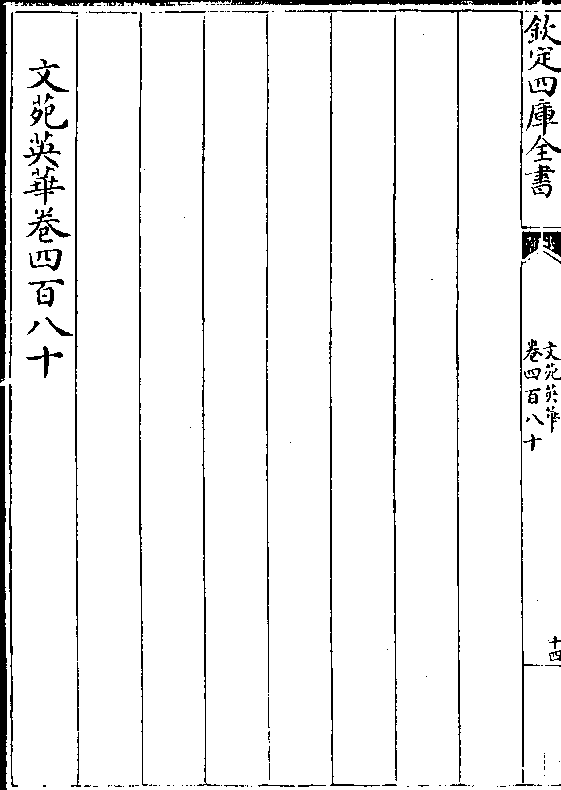 欽定四庫全書
文苑英華
卷四百八十
十四
文苑英華卷四百八十